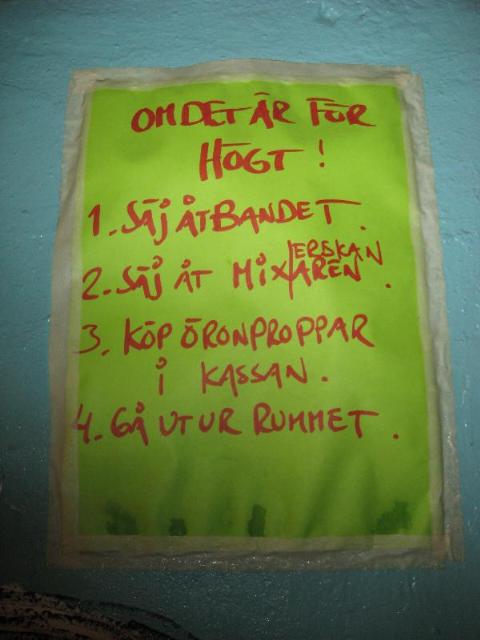 OM DET ÄR FÖR
HÖGT!
1. SÄJ ÅT BANDET.
2. SÄJ ÅT MIXAREN/ERSKAN.
3. KÖP ÖRONPROPPAR
I KASSAN.
4. GÅ UT UR RUMMET.